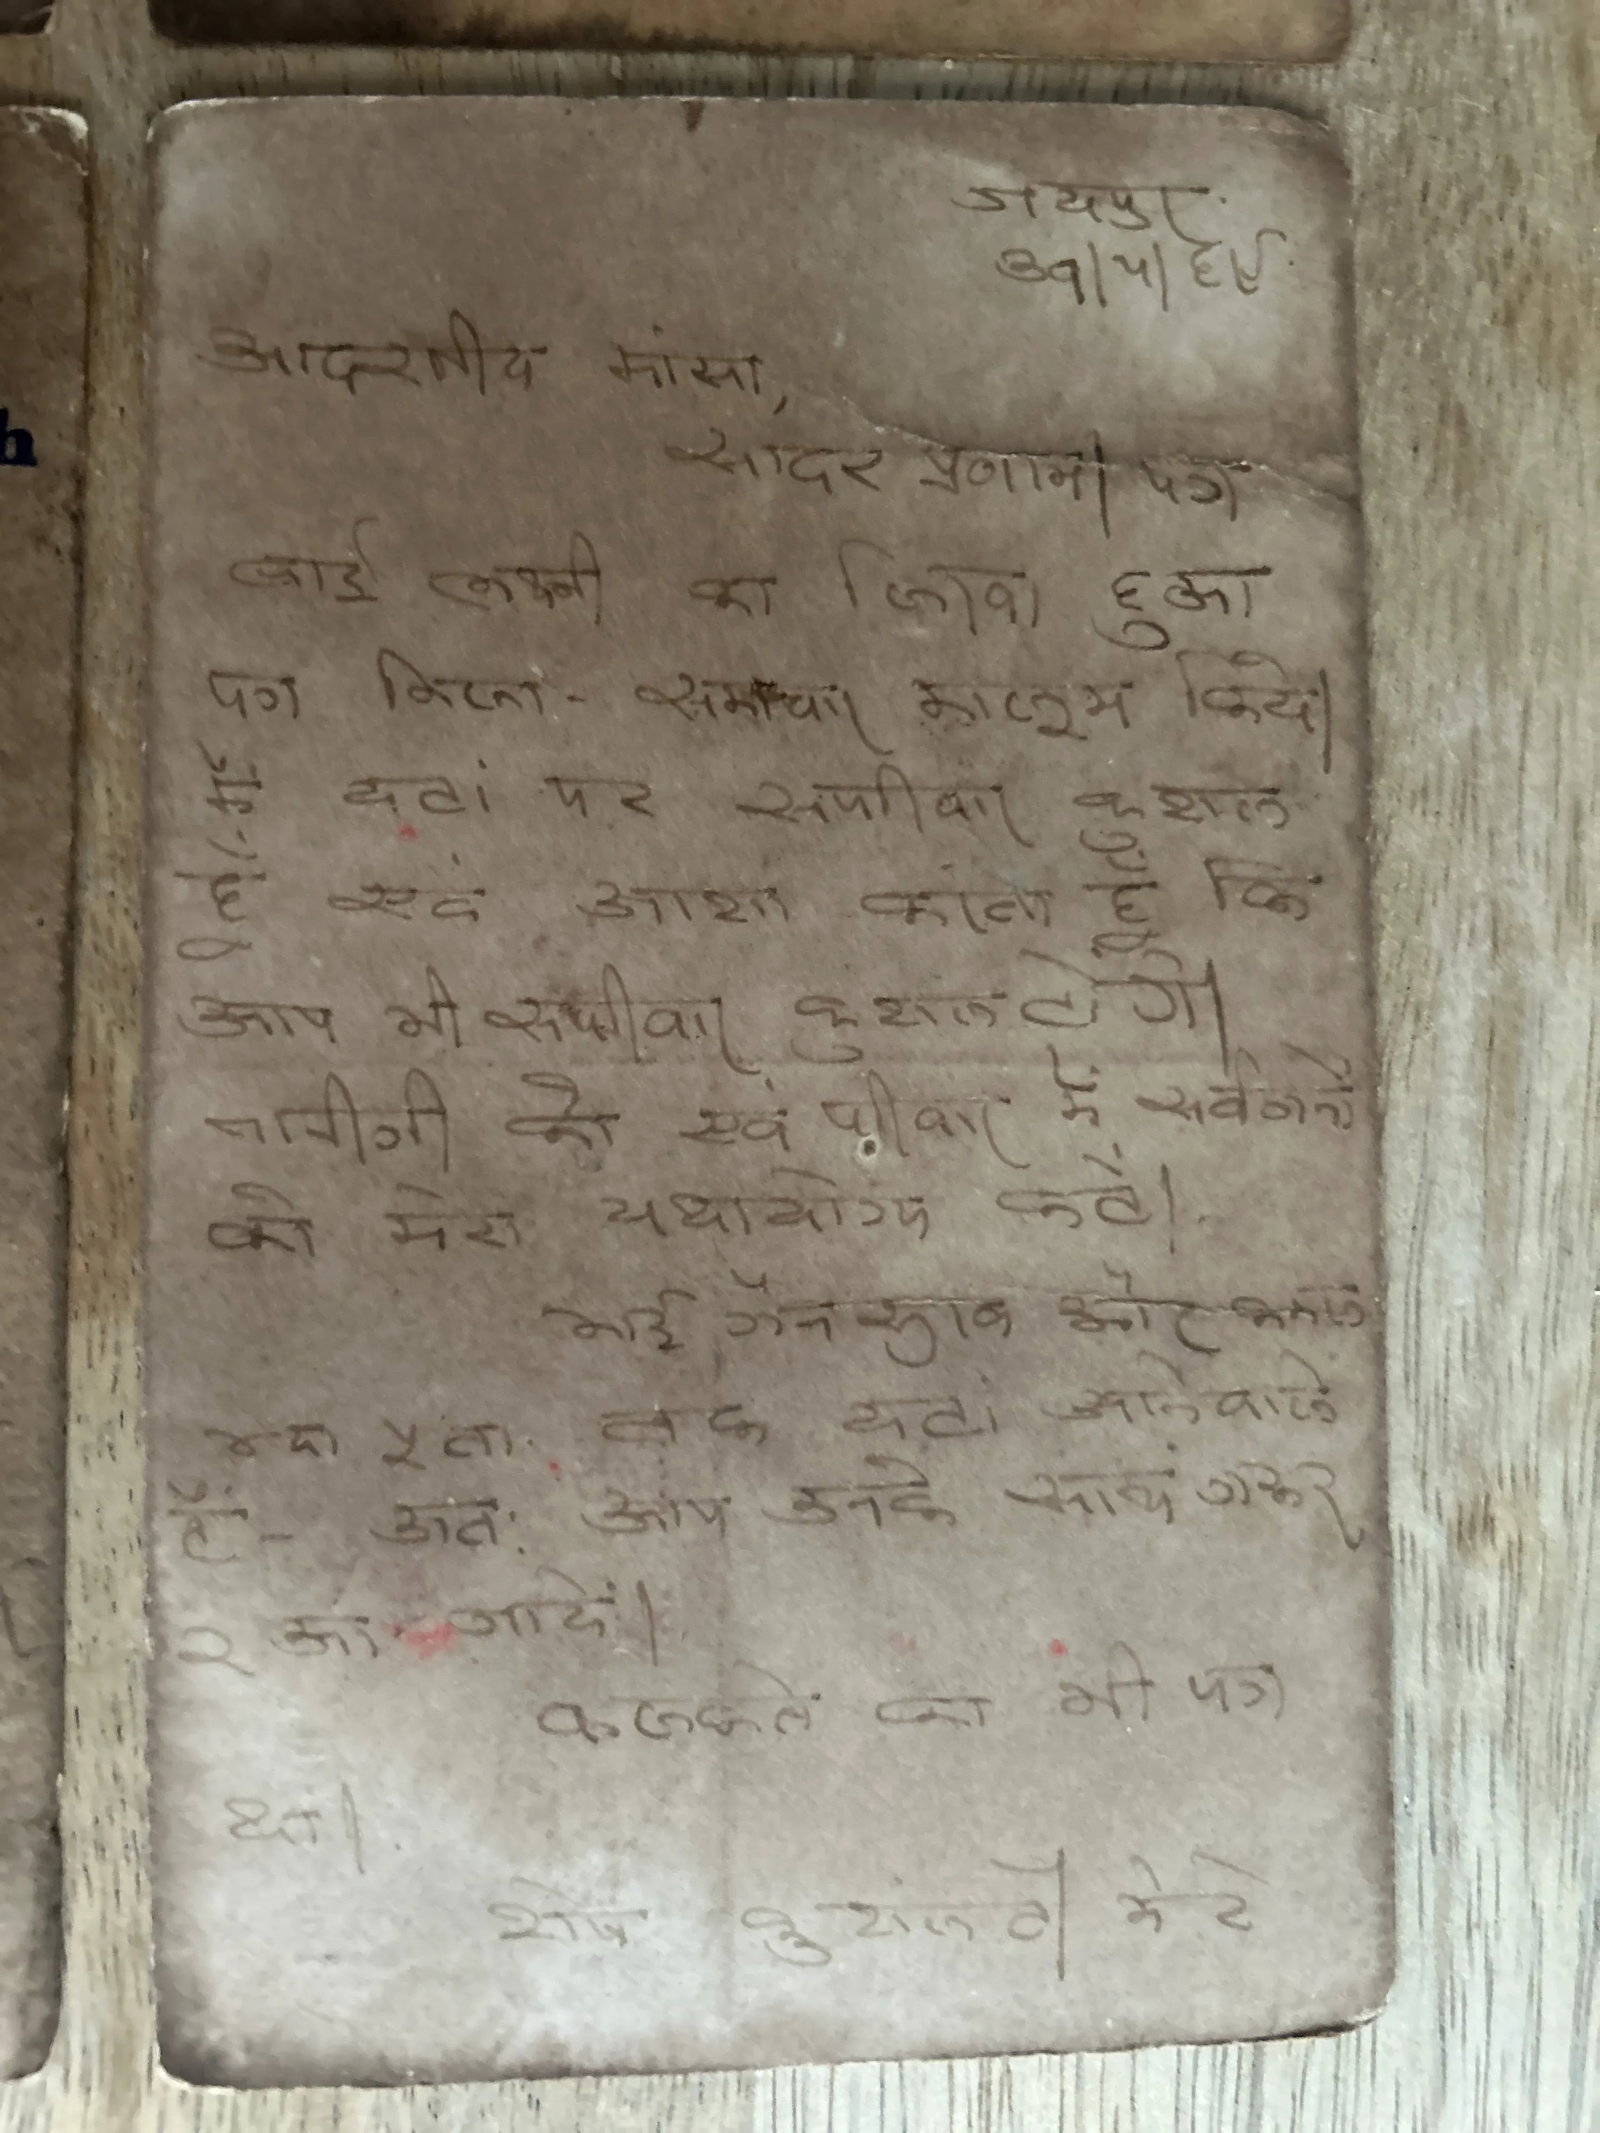 जयपुर
आदरणीय मांसा,
सादर प्रणाम। पत्र
बाई लक्ष्मी का लिखा हुआ
पत्र मिला - समाचार मालूम किये।
मैं यहां पर सपरिवार कुशल
हूं एवं आशा करता हूं कि
आप भी सपरिवार कुशल होंगे।
नानीजी को एवं परिवार में सर्वजनो
को मेरा यथायोग्य कहें।
भाई और
ता. तक यहां आनेवाले
हैं - अतः आप उनके साथ जरूर
२ आ जावें।
कलकत्ते का भी पत्र
था।
शेष कुशल है। मेरे
h